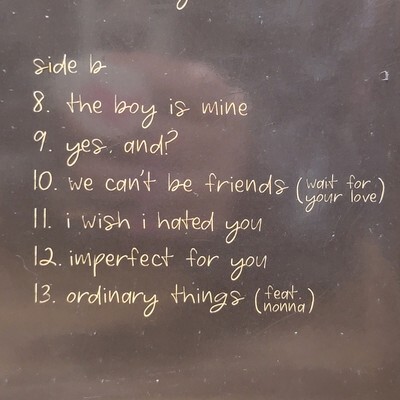 side b
8. the boy is mine
9. yes, and?
10. we can't be friends (wait for your love)
11. i wish i hated you
12. imperfect for you
13. ordinary things (feat. nonna)